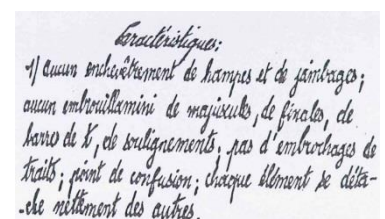 Caractéristiques:
1) aucun enchevêtrement de hampes et de jambages;
aucun embrouillamini de majuscules, de finales, de
barres de t, de soulignements; pas d'embrochages de
traits; point de confusion; chaque élément se déta-
-che nettement des autres.